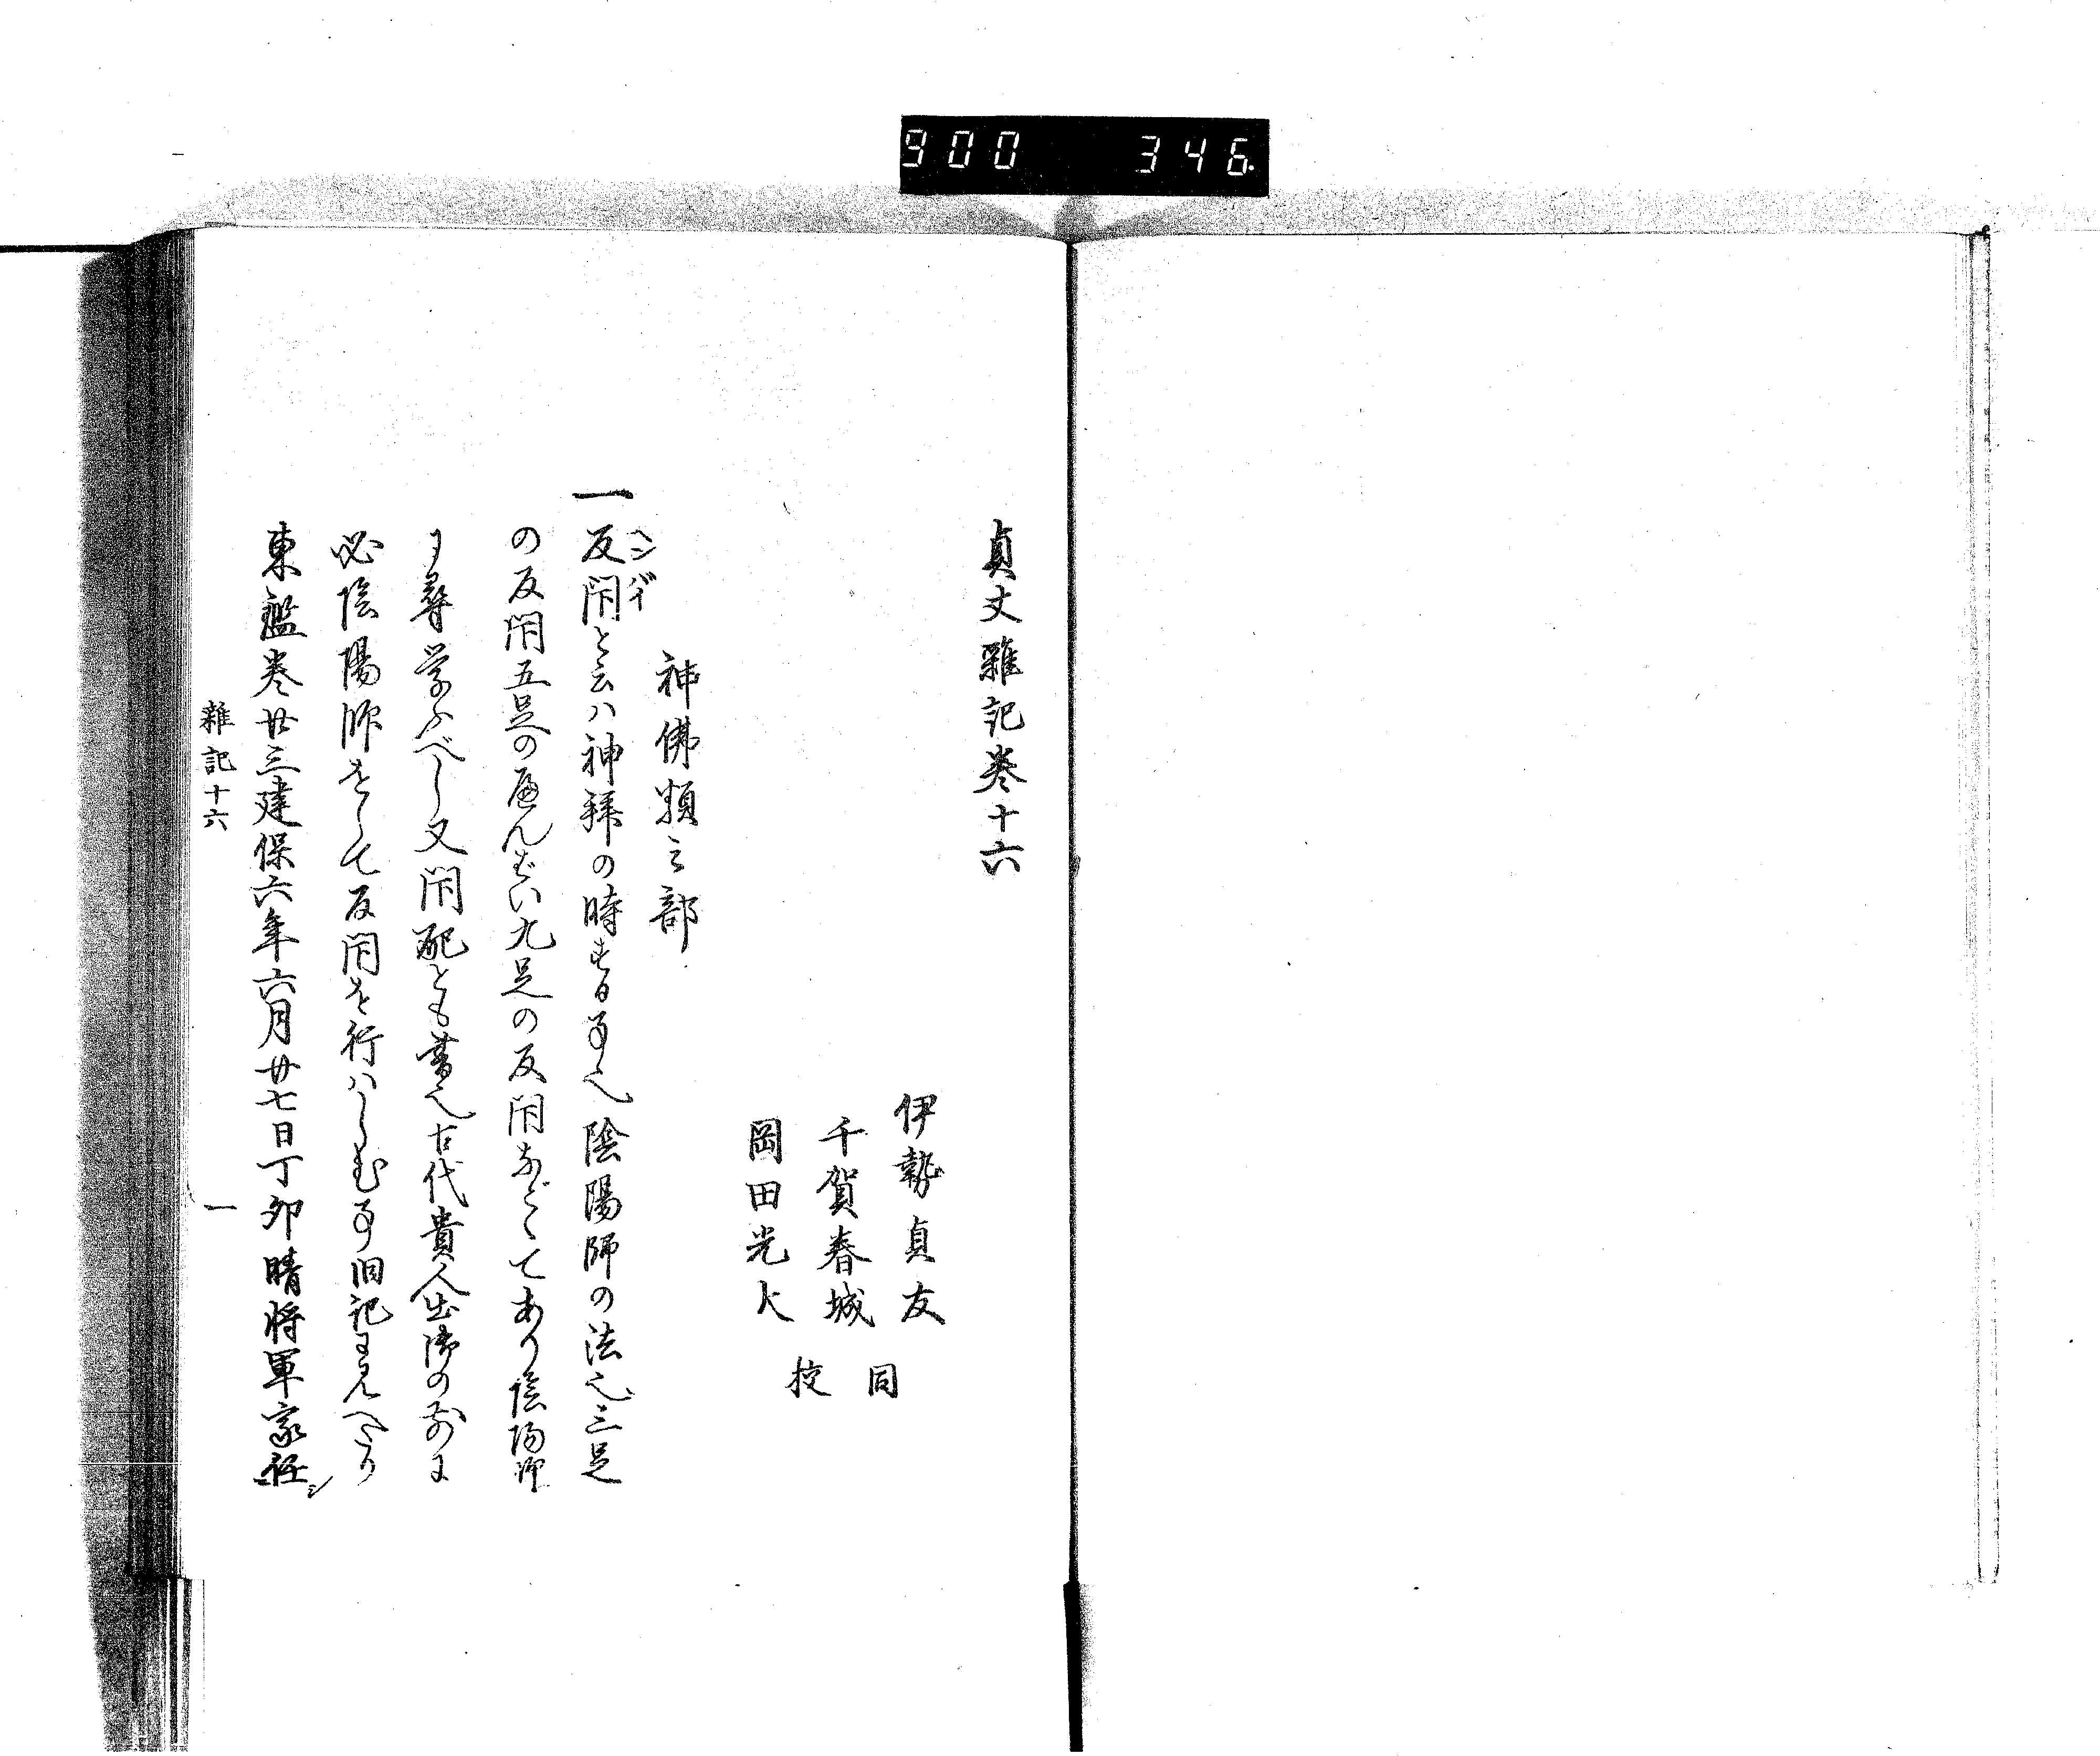 900 346
貞丈雜記巻十六
伊勢貞友
千賀春城
岡田光大
同
挍
神佛類之部
一反閇と云ハ神拝の時する事也陰陽師の法也三足
ヘンバイ
の反閇五足のへんばい九足の反閇などゝてあり陰陽師
に尋学ふべし又閇配とも書也古代貴人出御の前に
必陰陽師をして反閇を行ハしむ事旧記に見へたり
東鑑巻廿三建保六年六月廿七日丁卯晴将軍家任シ
雜記十六
一